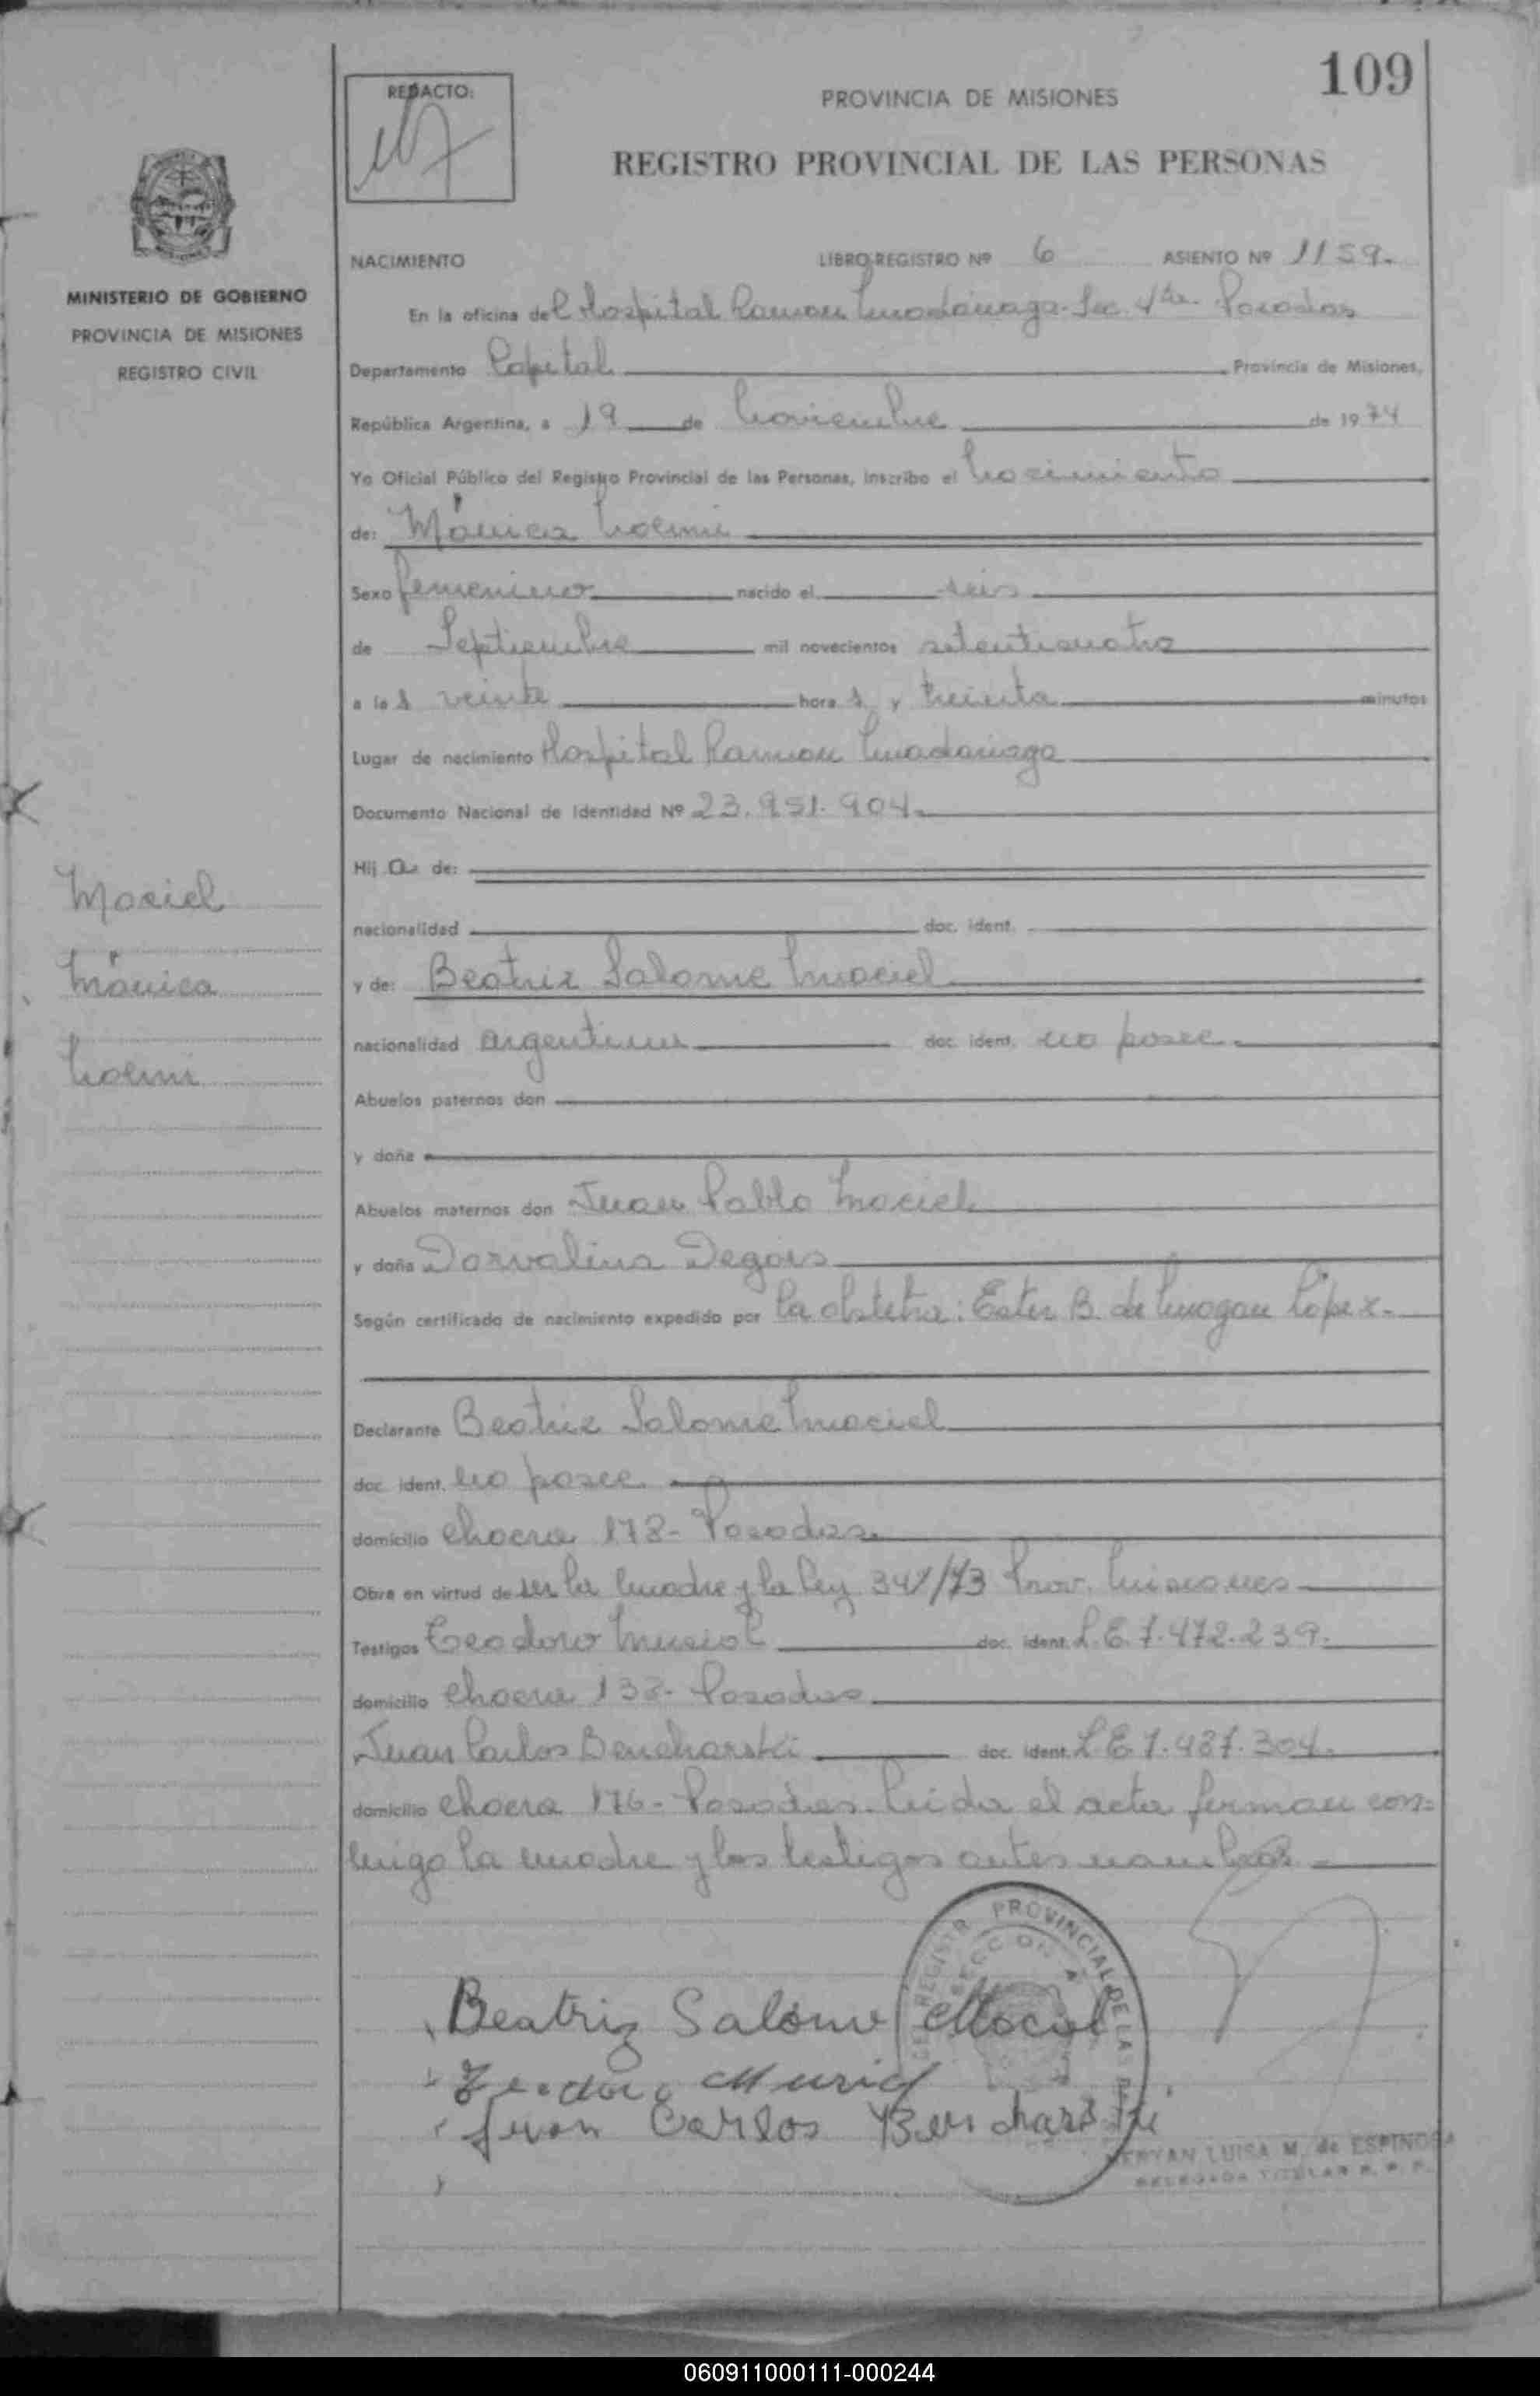 109
REDACTO:
PROVINCIA DE MISIONES
REGISTRO PROVINCIAL DE LAS PERSONAS
MINISTERIO DE GOBIERNO
PROVINCIA DE MISIONES
REGISTRO CIVIL
Maciel
Mónica
Noemi
NACIMIENTO LIBRO-REGISTRO Nº 6 ASIENTO Nº 1159.
En la oficina del Hospital Ramon Madariaga-Sec. 4ta. Posadas
Departamento Capital Provincia de Misiones,
República Argentina, a 19 de Noviembre de 1974
Yo Oficial Público del Registro Provincial de las Personas, inscribo el Nacimiento
de: Mónica Noemi
Sexo femenino nacido el seis
de Septiembre mil novecientos setenticuatro
a las veinte horas y treinta minutos
Lugar de nacimiento Hospital Ramon Madariaga
Documento Nacional de Identidad Nº 23.951.904.
Hija de:
nacionalidad doc. ident.
y de: Beatriz Salome Maciel
nacionalidad argentina doc. ident. no posee.
Abuelos paternos don
y doña
Abuelos maternos don Juan Pablo Maciel
y doña Dorvalina Degois
Según certificado de nacimiento expedido por la obstetra: Ester B. de Mogan López.
Declarante Beatriz Salome Maciel
doc. ident. No posee.
domicilio Chacra 178- Posadas.
Obra en virtud de ser la madre y la ley 341/73 Prov. Misiones
Testigos Teodoro Musiol doc. ident. L.E. 7.472.239.
domicilio Chacra 132- Posadas
Juan Carlos Bencharski doc. ident. L.E. 7.487.304.
domicilio Chacra 176- Posadas. Leida el acta firman con-
migo la madre y los testigos antes nombrados
REGISTR. PROVINCIAL DE LAS
SECCION 4
Beatriz Salome Maciel
Teodoro
Juan Carlos Bencharski
LUISA M. de ESPINOSA
DELEGADA TITULAR R. P. P.
060911000111-000244